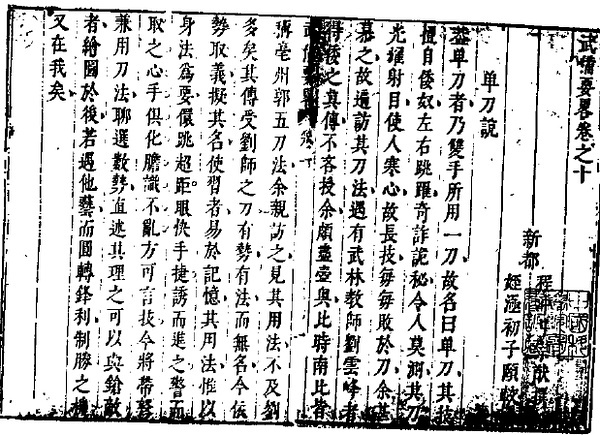 武備要畧卷之十
新都
程獻撰
姪涵初子頤校
單刀說
盖單刀者乃雙手所用一刀故名曰單刀其技
擅自倭奴左右跳躍奇詐詭秘令人莫測其刀
光耀射目使人寒心故長技每每敗於刀余甚
慕之故遍訪其刀法遇有武林敎師劉雲峰者
得倭之真傳不吝授余頗盡壼奥比時南北皆
武備要畧
稱亳州郭五刀法余親訪之見其用法不及劉
多矣其傳受劉師之刀有勢有法而無名今依
勢取義擬其名使習者易於記憶其用法惟以
身法為要儇跳超距眼快手捷誘而進之驚而
取之心手俱化膽識不亂方可言技今將帶
兼用刀法聊選數勢直述其理之可以與鎗敵
者繪圖於後若遇他藝而圓轉鋒利制勝之機
又在我矣